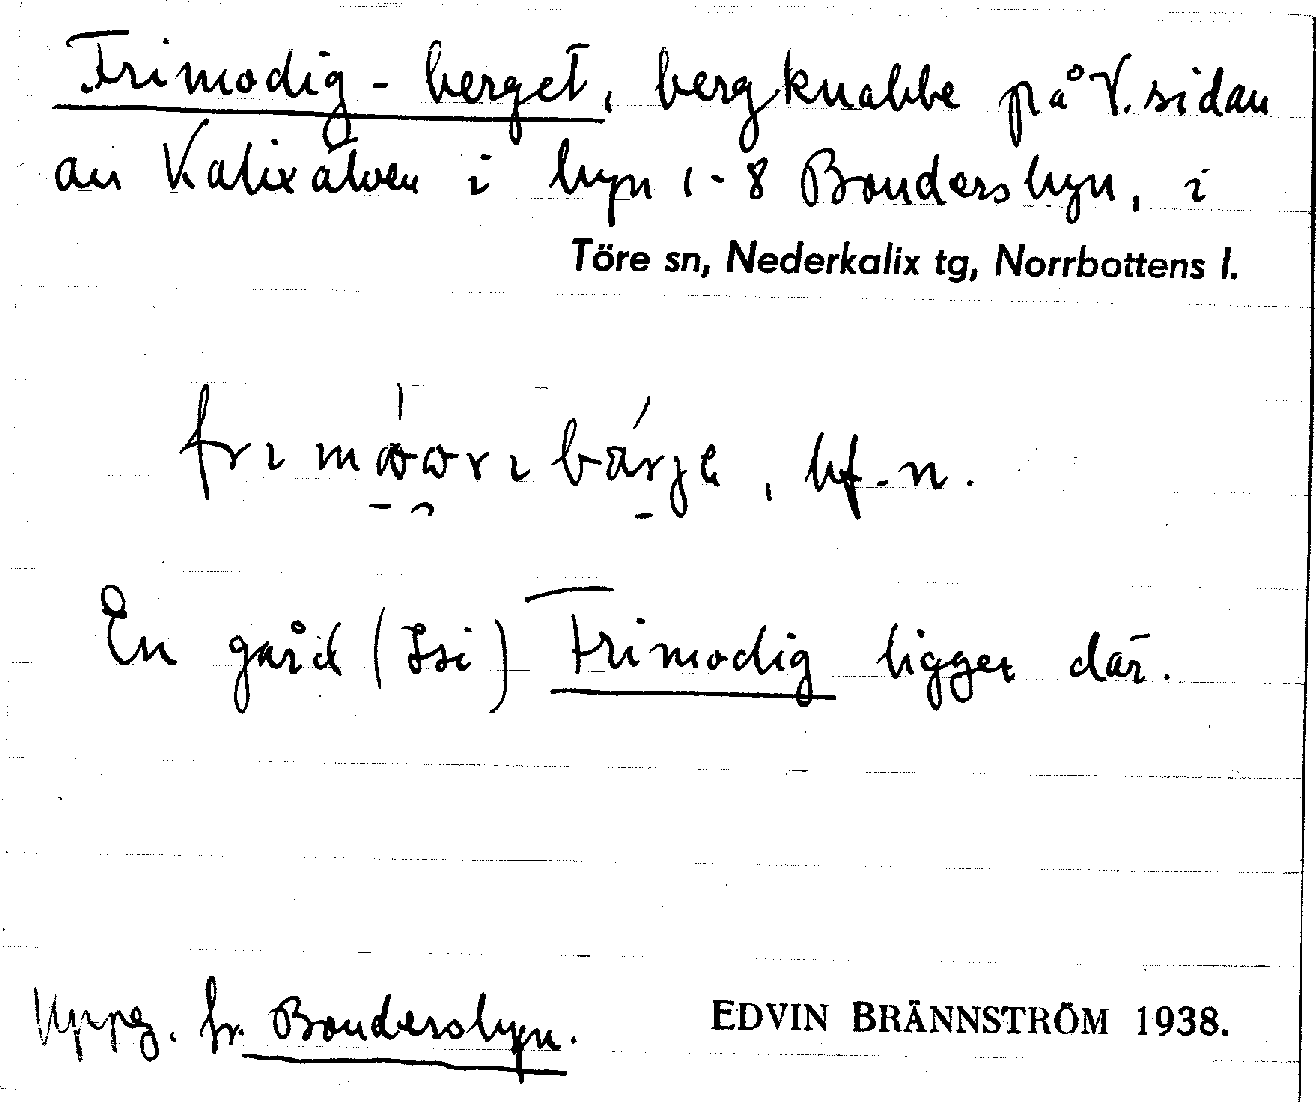 Frimodig-berget, bergknabbe på V. sidan
av Kalixälven i byn 1-8 Bondersbyn, i
Töre sn, Nederkalix tg, Norrbottens l.
bf. n.
En gård (Isi) Frimodig ligger där.
Uppg. fr. Bondersbyn.
EDVIN BRÄNNSTRÖM 1938.